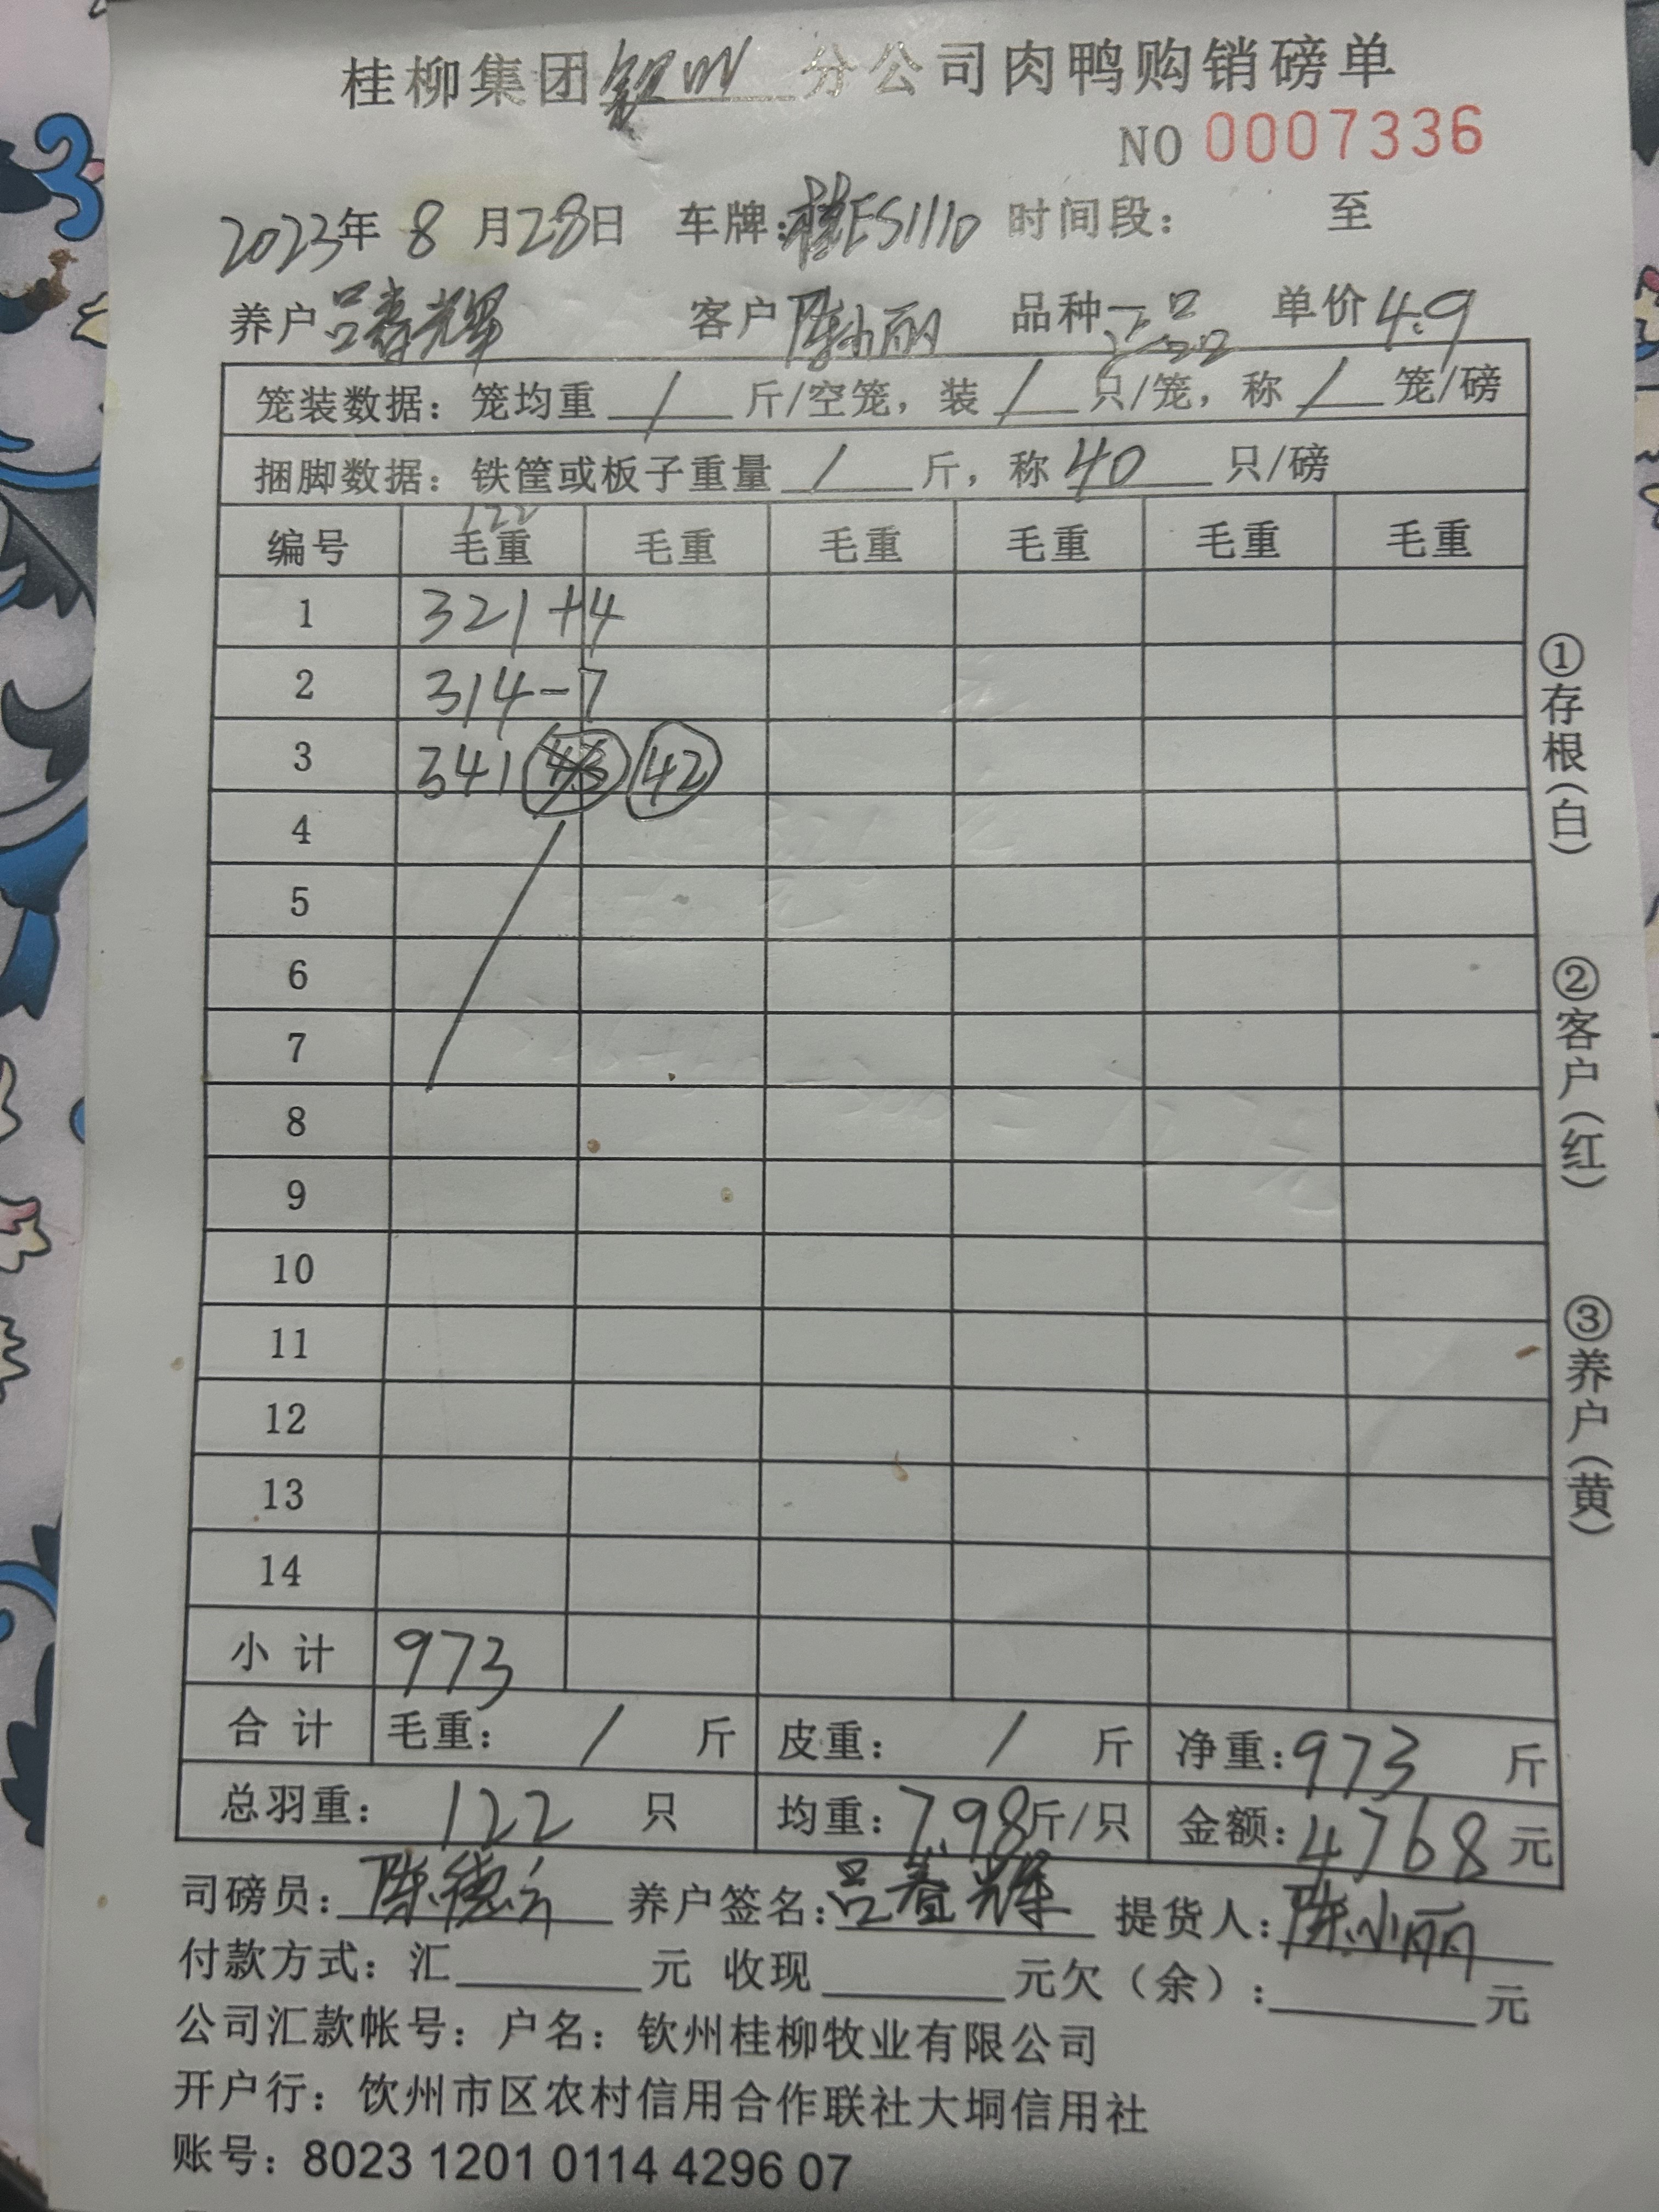 桂柳集团钦州分公司肉鸭购销磅单
NO 0007336
2023年 8 月28日 车牌:桂ES1110 时间段: 至
养户吕春辉 客户陈小丽 品种二品 单价4.9
笼装数据:笼均重 / 斤/空笼,装 / 只/笼,称 / 笼/磅
捆脚数据:铁筐或板子重量 / 斤,称 40 只/磅
122
编号 毛重 毛重 毛重 毛重 毛重 毛重
1 321+4
2 314-7
3 341 42
4
5
6
7
8
9
10
11
12
13
14
小 计 973
合 计 毛重: / 斤 皮重: / 斤 净重:973 斤
总羽重: 122 只 均重:7.98斤/只 金额:4768元
司磅员:陈德 养户签名:吕春辉 提货人:陈小丽
付款方式:汇 元 收现 元欠(余): 元
公司汇款帐号:户名:钦州桂柳牧业有限公司
开户行:饮州市区农村信用合作联社大垌信用社
账号:8023 1201 0114 4296 07
①存根(白) ②客户(红) ③养户(黄)